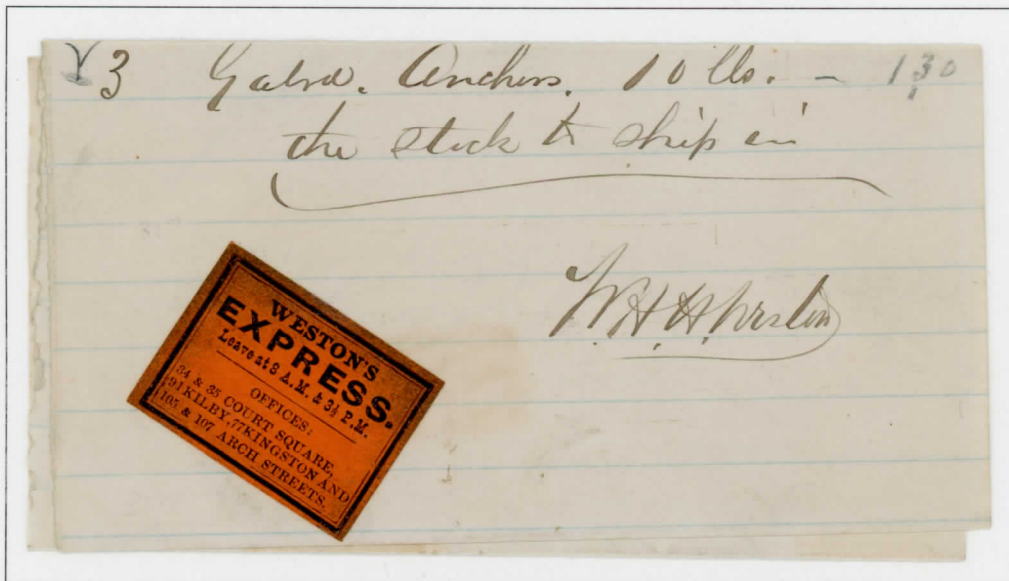 3 Galvd. Anchors. 10 lbs. – 130
the stock to ship in
W.H.H. Weston
WESTON'S
EXPRESS.
Leave at 8 A.M. & 3½ P.M.
OFFICES:
34 & 35 COURT SQUARE,
91 KILBY, 77 KINGSTON AND
105 & 107 ARCH STREETS.